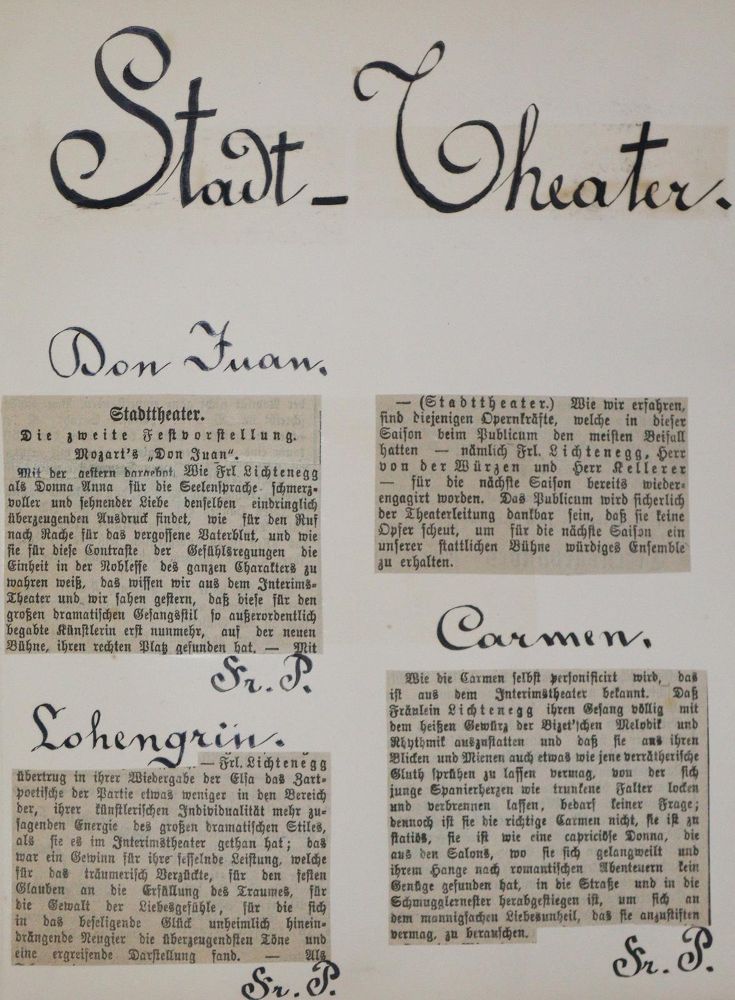 Stadt-Theater.
Don Juan.
Stadttheater.
Die zweite Festvorstellung.
Mozart's „Don Juan“.
Mit der gestern dargebot. Wie Frl Lichtenegg
als Donna Anna für die Seelensprache schmerz-
voller und sehnender Liebe denselben eindringlich
überzeugenden Ausdruck findet, wie für den Ruf
nach Rache für das vergossene Vaterblut, und wie
sie für diese Contraste der Gefühlsregungen die
Einheit in der Noblesse des ganzen Charakters zu
wahren weiß, das wissen wir aus dem Interims-
Theater und wir sahen gestern, daß diese für den
großen dramatischen Gesangsstil so außerordentlich
begabte Künstlerin erst nunmehr, auf der neuen
Bühne, ihren rechten Platz gefunden hat. — Mit
Fr. P.
Lohengrin.
— Frl. Lichtenegg
übertrug in ihrer Wiedergabe der Elsa das Zart-
poetische der Partie etwas weniger in den Bereich
der, ihrer künstlerischen Individualität mehr zu-
sagenden Energie des großen dramatischen Stiles,
als sie es im Interimstheater gethan hat; das
war ein Gewinn für ihre fesselnde Leistung, welche
für das träumerisch Verzückte, für den festen
Glauben an die Erfüllung des Traumes, für
die Gewalt der Liebesgefühle, für die sich
in das beseligende Glück unheimlich hinein-
drängende Neugier die überzeugendsten Töne und
eine ergreifende Darstellung fand. — Als
Fr. P.
— (Stadttheater.) Wie wir erfahren,
sind diejenigen Opernkräfte, welche in dieser
Saison beim Publicum den meisten Beifall
hatten — nämlich Frl. Lichtenegg, Herr
von der Würzen und Herr Kellerer
— für die nächste Saison bereits wieder-
engagirt worden. Das Publicum wird sicherlich
der Theaterleitung dankbar sein, daß sie keine
Opfer scheut, um für die nächste Saison ein
unserer stattlichen Bühne würdiges Ensemble
zu erhalten.
Carmen.
Wie die Carmen selbst personificirt wird, das
ist aus dem Interimstheater bekannt. Daß
Fräulein Lichtenegg ihren Gesang völlig mit
dem heißen Gewürz der Bizet'schen Melodik und
Rhythmik auszustatten und daß sie aus ihren
Blicken und Mienen auch etwas wie jene verrätherische
Gluth sprühen zu lassen vermag, von der sich
junge Spanierherzen wie trunkene Falter locken
und verbrennen lassen, bedarf keiner Frage;
dennoch ist sie die richtige Carmen nicht, sie ist zu
statiös, sie ist wie eine capriciöse Donna, die
aus den Salons, wo sie sich gelangweilt und
ihrem Hange nach romantischen Abenteuern kein
Genüge gefunden hat, in die Straße und in die
Schmugglernester herabgestiegen ist, um sich an
dem mannigfachen Liebesunheil, das sie anzustiften
vermag, zu berauschen.
Fr. P.